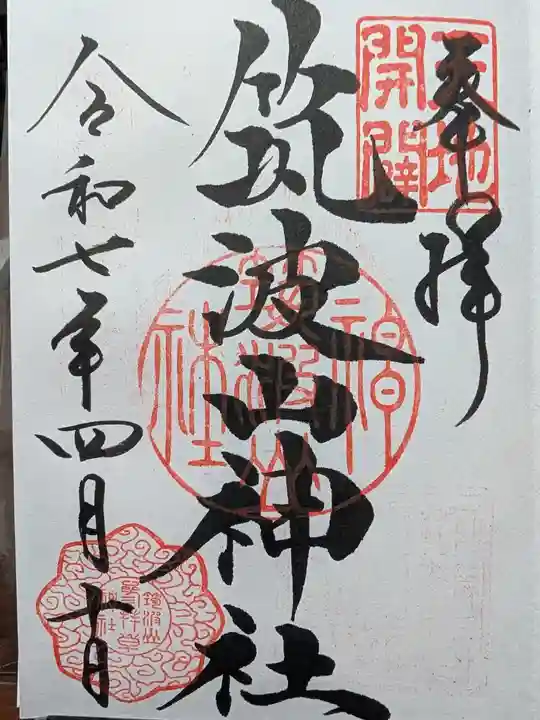 奉拝
天地
開闢
筑波山神社
神
筑波山
社
令和七年四月十日
筑波山
神社